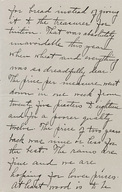 for bread instead of giving
it to the treasurer for
tuition. That was absolutely
unavoidable this year,
when wheat and everything
was so dreadfully dear.
The price per measure went
down in one week from
twenty five piastres to eighteen
and for a poorer quality
twelve. The price of two years
back was nine or less for
the best. The rains are
fine and we are
hoping for lower prices.
At last wood is to be